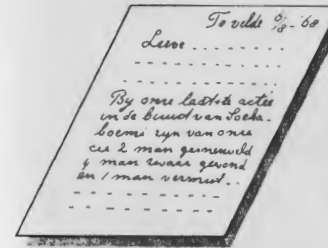 Te velde 9/8 - '68
Lieve . . . . . . . .
By onze laatste actie
in de buurt van Soeka-
boemi zyn van onze
cie 2 man gesneuveld
4 man zwaar gewond
en 1 man vermist . .